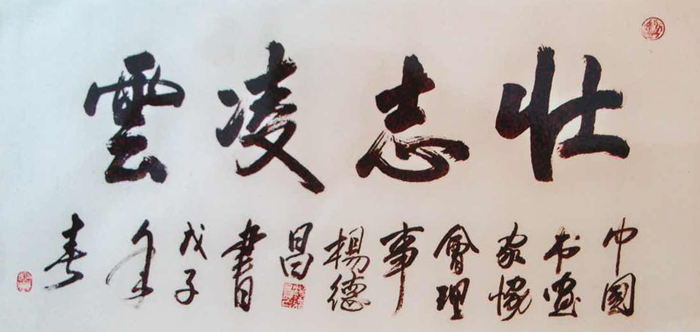 壮志凌雲
中國书画家協會理事楊德昌書戊子年春